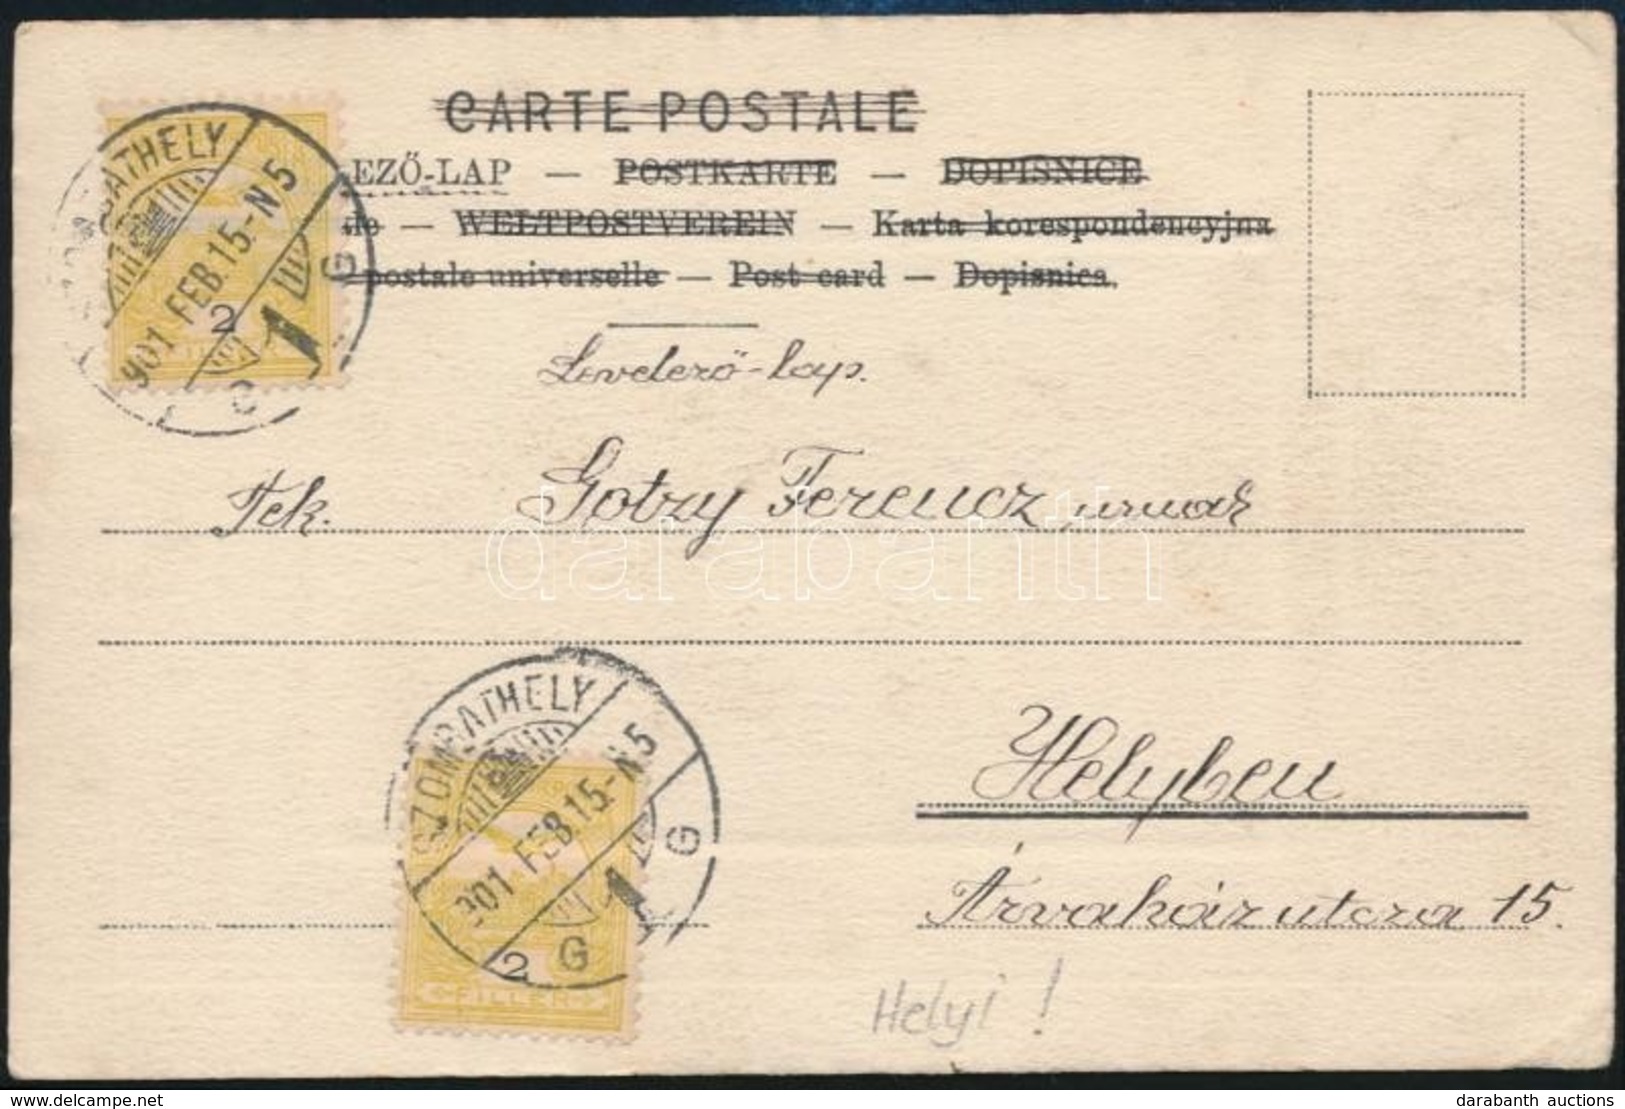 CARTE POSTALE
EZŐ-LAP — POSTKARTE — DOPISNICE
le — WELTPOSTVEREIN — Karta korespondencyjna
postale universelle — Post card — Dopisnica.
BATHELY
901 FEB.15.-N5
G
2
1
G
Levelező-lap.
Tek. Gotzy Ferencz urnak
darabanth
SZOMBATHELY
901 FEB.15.-N5
G
1
2
G
FILLÉR
Helyben
Árvaház utcza 15.
Helyi !
delcampe.net
darabanth auctions